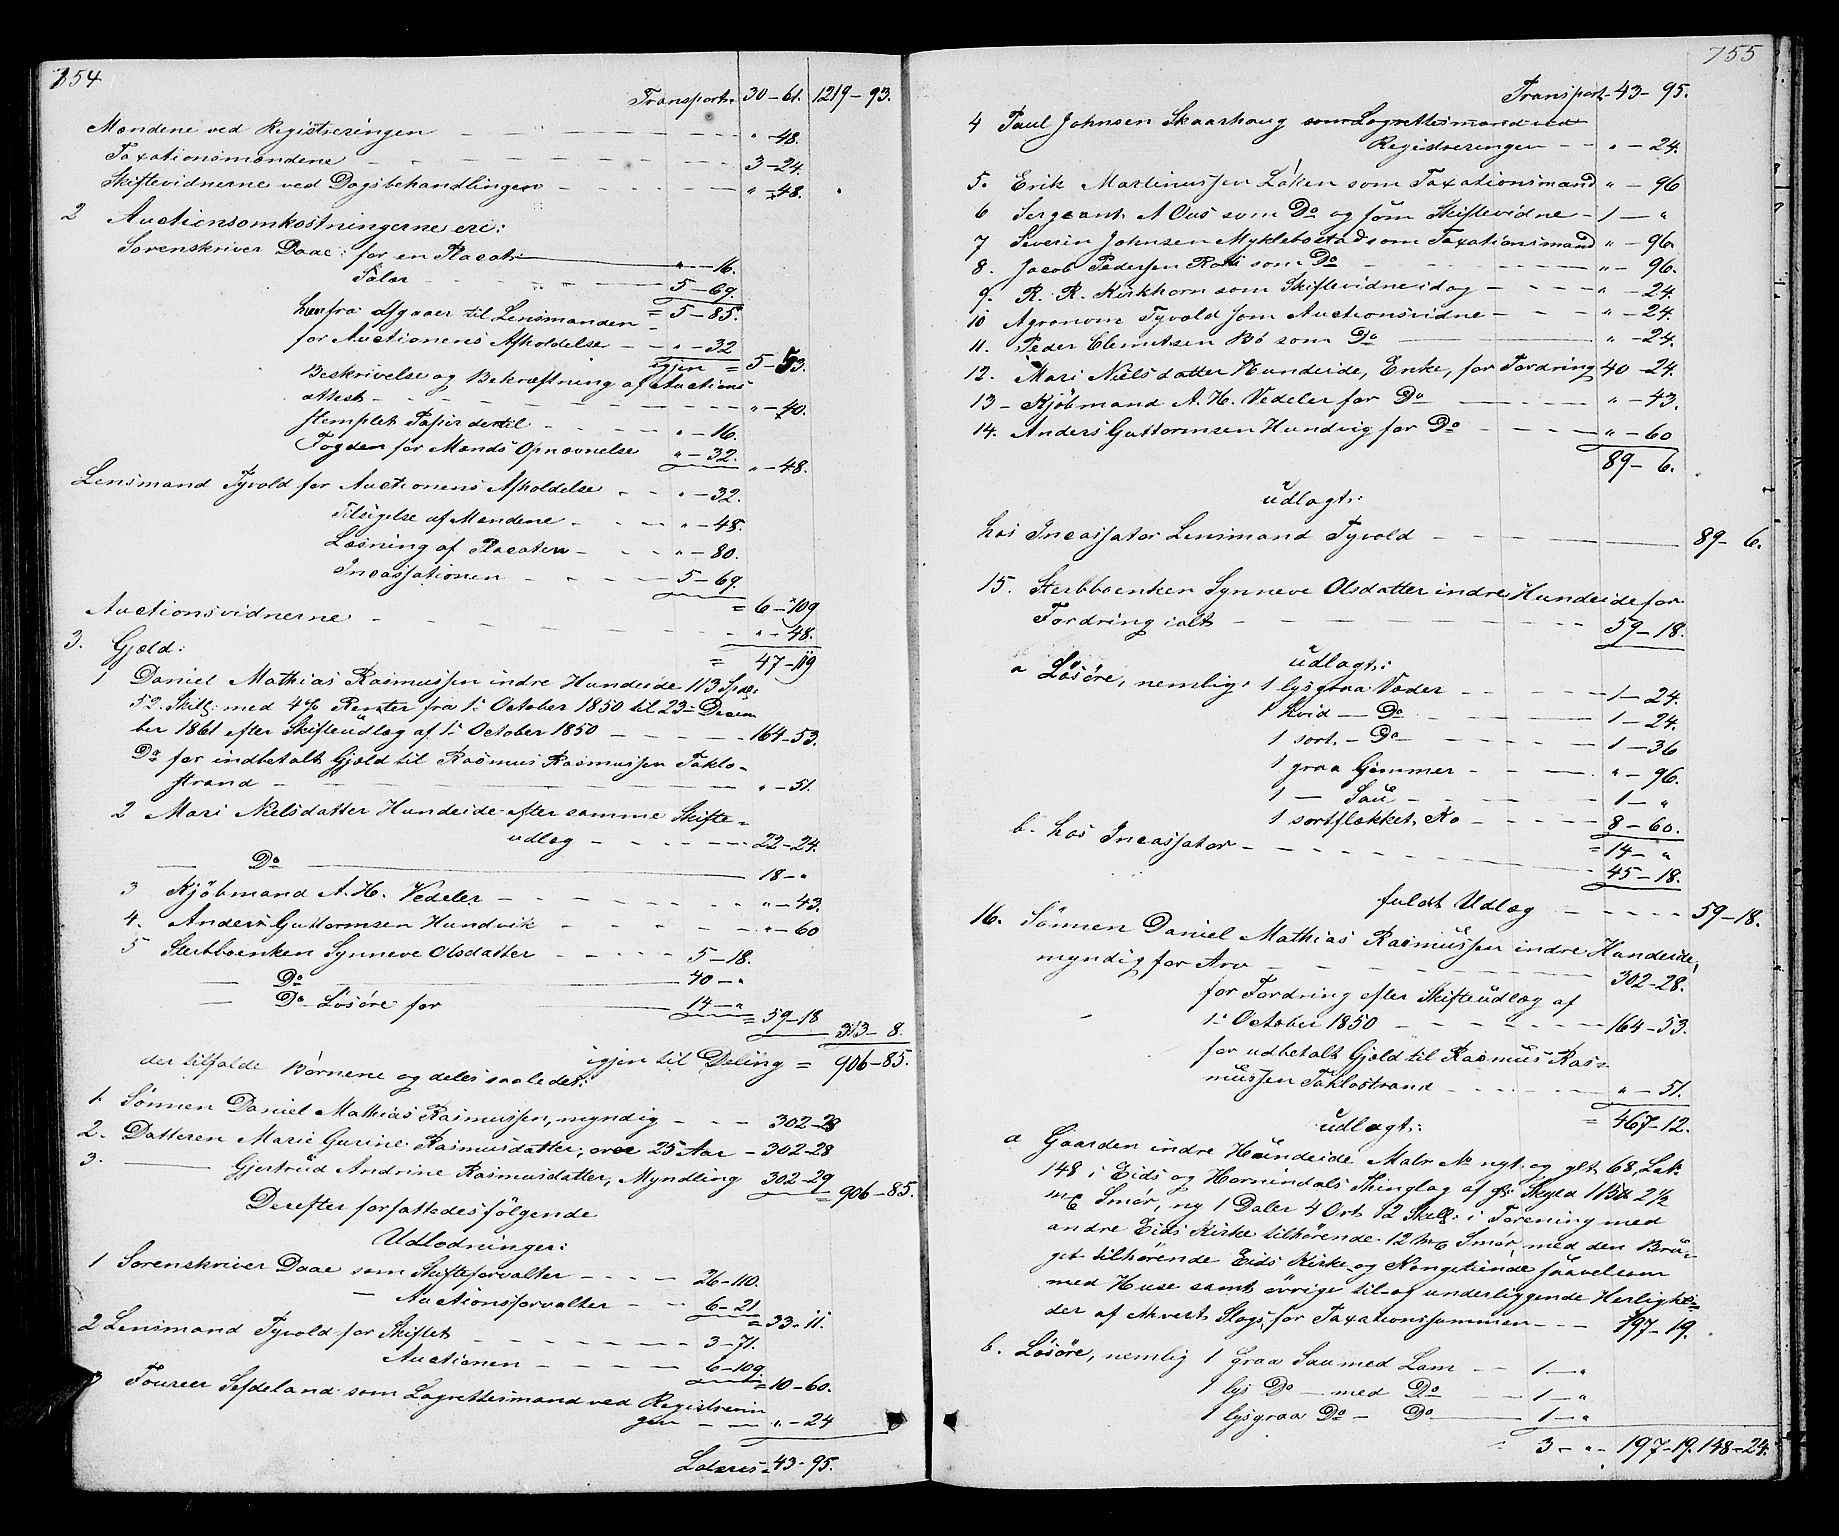 754
Transport. 30-61. 1219-93.
Mændene ved Registreringen " - 48.
Taxationsmændene 3-24.
Skiftevidnerne ved Dagsbehandlingen " - 48.
2 Auctionsomkostningerne ere:
Sorenskriver Daae: for en Placat " - 16.
Salær 5-69.
= 5-85.
herfra afgaaer til Lensmanden
for Auctionens Afholdelse " - 32
igjen = 5-53.
Beskrivelse og Bekræftning af Auctions
attest " - 40.
stemplet Papir dertil " - 16.
Fogden for Mænds Opnævnelse " - 32.
" - 48.
Lensmand Tyvold for Auctionens Afholdelse " - 32.
Tilsigelse af Mændene " - 48.
Læsning af Placaten " - 80.
Incassationen 5-69.
= 6-109
Auctionsvidnerne " - 48.
= 47-119
3. Gjæld:
1 Daniel Mathias Rasmussen indre Hundeide 113 Spd:
52 Skill: med 4% Renter fra 1ste October 1850 til 23de Decem
ber 1861 efter Skifteudlæg af 1ste October 1850 164-53.
Do for indbetalt Gjæld til Rasmus Rasmussen Taklo-
strand " - 51.
2 Mari Nielsdatter Hundeide efter samme Skifte-
udlæg 22-24.
— Do 18 - "
3 Kjöbmand A. H. Vedeler " - 43.
4. Anders Guttormsen Hundvik " - 60
5 Sterbboenken Synneve Olsdatter 5-18.
— Do 40 - "
— Do Lösöre for 14 - "
= 59-18
313-8.
igjen til Deling = 906-85.
der tilfalde Börnene og deles saaledes:
1. Sönnen Daniel Mathias Rasmussen, myndig 302-28
2. Datteren Marie Gurine Rasmusdatter, over 25 Aar 302-28
3. — Gjertrud Andrine Rasmusdatter, Myndling 302-29
= 906-85.
Derefter forfattedes fölgende
Udlodninger:
1 Sorenskriver Daae som Skifteforvalter 26-110.
— Auctionsforvalter 6-21
= 33-11.
2 Lensmand Tyvold for Skiftet 3-71.
Auctionen 6-109
= 10-60.
3 Foureer Sefdeland som Lagrettesmand ved Registrerin
gen " - 24
Lateris 43-95.
755
Transport 43-95.
4 Paul Johnsen Skaarhaug som Lagrettesmand ved
Registreringen " - 24.
5. Erik Martinussen Løken som Taxationsmand " - 96
6 Sergeant A Aas som Do og som Skiftevidne 1 - "
7 Severin Johnsen Myklebostad som Taxationsmand " - 96.
8. Jacob Pedersen Roti som Do " - 96.
9. R. R. Kirkhorn som Skiftevidne idag " - 24.
10 Agronom Tyvold som Auctionsvidne " - 24.
11. Peder Clemetsen Bö som Do " - 24.
12. Mari Nielsdatter Hundeide, Enke, for Fordring 40-24.
13 - Kjöbmand A. H. Vedeler for Do " - 43.
14. Anders Guttormsen Hundvig for Do " - 60
89-6.
udlagt:
hos Incassator Lensmand Tyvold 89-6.
15. Sterbboenken Synneve Olsdatter indre Hundeide for
Fordring ialt 59-18.
udlagt:
a Lösöre, nemlig: 1 lysgraa Væder 1-24.
1 hvid — Do 1-24.
1 sort. — Do 1-36
1 graa Gjemmer " - 96.
1 — Sau 1 - "
1 sortflækket Ko 8-60.
= 14 - "
b. hos Incassator 45-18.
fuldt Udlæg 59-18.
16. Sönnen Daniel Mathias Rasmussen indre Hundeide,
myndig for Arv 302-28.
for Fordring efter Skifteudlæg af
1ste October 1850 164-53.
for udbetalt Gjæld til Rasmus Ras-
mussen Taklostrand " - 51.
= 467-12.
udlagt:
a Gaarden indre Hundeide Matr No nyt og glt 68, Lb.
148 i Eids og Hornindals Thinglag af gl Skyld 1 2½
Smör, ny 1 Daler 4 Ort 12 Skill: i Forening med
andre Eids Kirke tilhörende 12 Smör, med den Bru-
get tilhörende Eids Kirke og Kongetiende saavelsom
med Huse samt övrige til og underliggende Herlighe-
der af Slags, for Taxationssummen 197-19.
b. Lösöre, nemlig 1 graa Sau med Lam 1 - "
1 lys Do — med Do 1 - "
1 lysgraa Do — Do 1 - "
3 - " - 197-19. 148-24.